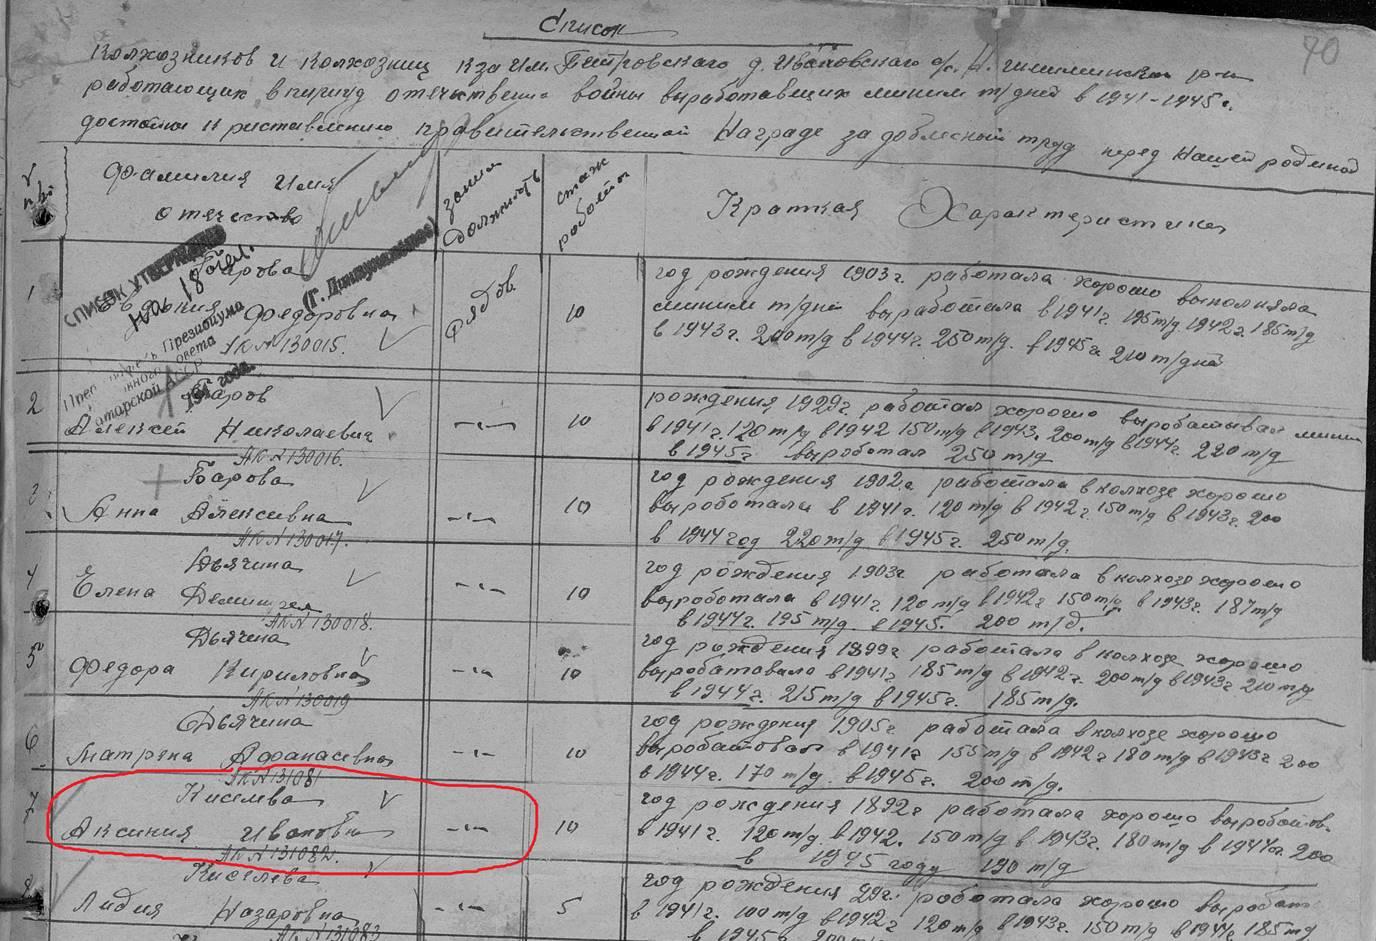 Список
70
Колхозников и колхозниц к-за им. Петровского д. Ивановского с/с Н. Шешминского р-на
работающих в период отечествен. войны выработавших миним т/дней в 1941-1945 г.
достойн к риставлению правительственной Награде за доблесный труд перед Нашей родиной
Фамилия Имя отечество
Должность
стаж работы
Краткая Характеристика
СПИСОК УТВЕРЖДЕН
на 18 чел.
Президиума
(Г. Динмухаметов)
194 года.
1
Барова
Федоровна
АК N 130015.
рядов.
10
год рождения 1903 г. работала хорошо выполняла
миним т/дней выработала в 1941 г. 195 т/д 1942 г. 185 т/д
в 1943 г. 200 т/д в 1944 г. 250 т/д. в 1945 г. 210 т/дней
2
Баров
Алексей Николаевич
АК N 130016.
-"-
10
рождения 1929 г работал хорошо выробатывал миним
в 1941 г. 120 т/д в 1942 150 т/д в 1943. 200 т/д в 1944 г. 220 т/д
в 1945 г выроботал 250 т/д
3
Барова
Анна Алексивна
АК N 130017.
-"-
10
год рождения 1902 г работала в колхозе хорошо
выроботала в 1941 г. 120 т/д в 1942 г. 150 т/д в 1943 г. 200
в 1944 год 220 т/д в 1945 г. 250 т/д.
4
Дьячина
Елена
АК N 130018.
-"-
10
год рождения 1903 г работала в колхозе хорошо
выроботала в 1941 г. 120 т/д в 1942 г 150 т/д в 1943 г. 187 т/д
в 1944 г. 195 т/д. в 1945. 200 т/д.
5
Дьячина
Федора Кириловна
АК N 130019
-"-
10
год рождения 1899 г работала в колхозе хорошо
выробатовала в 1941 г 185 т/д в 1942 г. 200 т/д в 1943 г 210 т/д
в 1944 г. 215 т/д в 1945 г. 185 т/д.
6
Дьячина
Матрена Афанасивна
АК N 131081
-"-
10
год рождения 1905 г работала в колхозе хорошо
выробатовал в 1941 г 155 т/д в 1942 г 180 т/д в 1943 г 200
в 1944 г. 170 т/д. в 1945 г. 200 т/д.
7
Киселева
Аксиния Ивановна
АК N 131082.
-"-
10
год рождения 1892 г работала хорошо выробатов.
в 1941 г. 120 т/д в 1942. 150 т/д в 1943 г. 180 т/д в 1944 г. 200
в 1945 году 190 т/д
8
Киселева
Лидия Назаровна
АК N 131083
-"-
5
год рождения 29 г. работала хорошо выработ
в 1941 г. 100 т/д в 1942 г. 120 т/д в 1943 г. 150 т/д в 1944 г 185 т/д
в 1945 г. 200 т/д